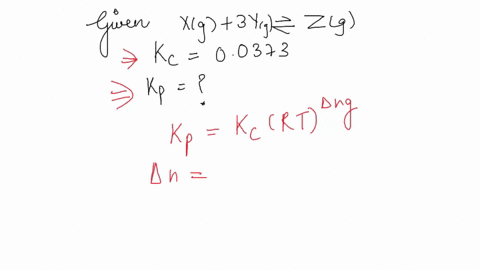 Given X(g)+3Y(g)⇌ Z(g)
⇒ Kc = 0.0373
⇒ Kp = ?
Kp = Kc (RT)^Δng
Δn =